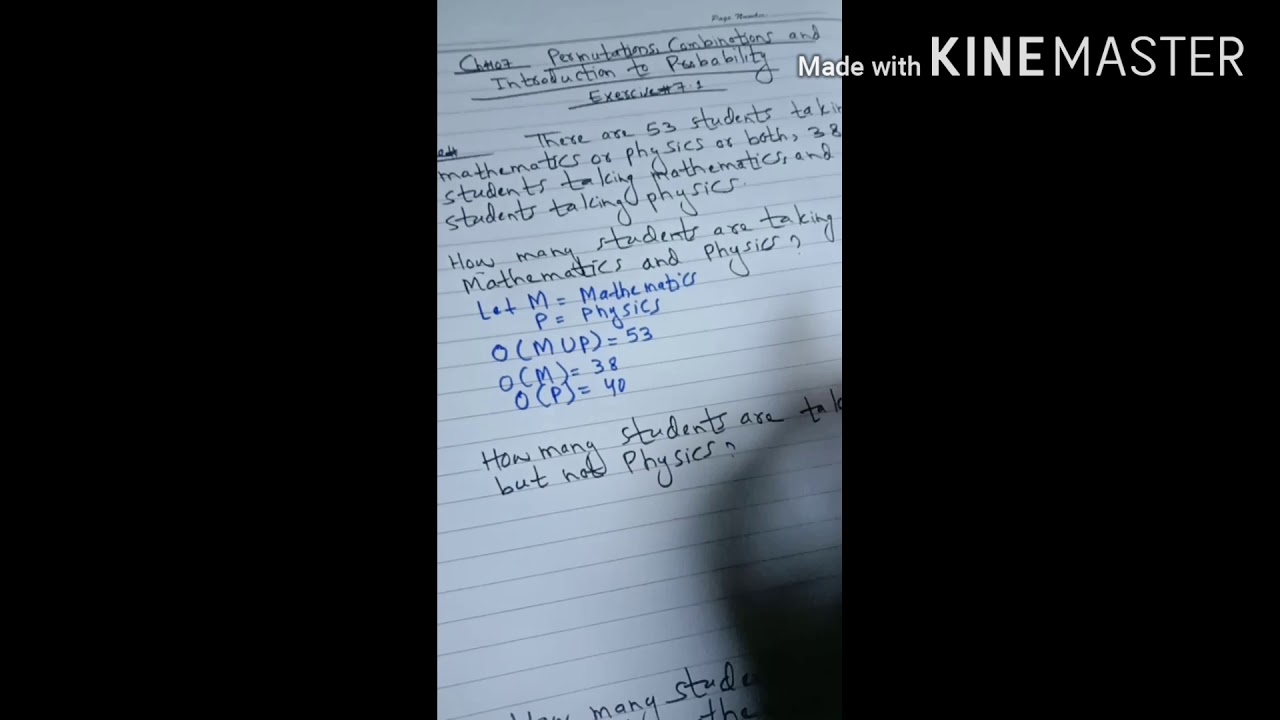 Page Number
Made with KINEMASTER
Ch#07 Permutations, Combinations and
Introduction to Probability
Exercise#7.1
There are 53 students takin
mathematics or physics or both, 38
students taking mathematics, and
students taking physics.
How many students are taking
Mathematics and Physics?
Let M = Mathematics
P = Physics
O(MUP) = 53
O(M) = 38
O(P) = 40
How many students are tak
but not Physics?
How many stude
the